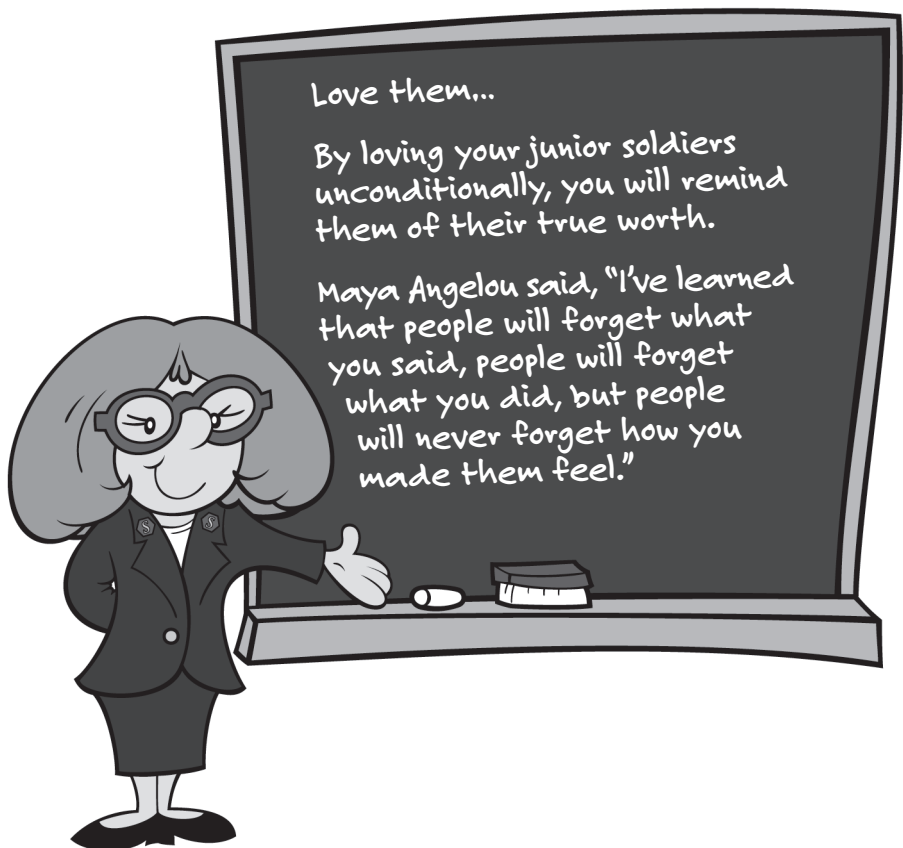 Love them...
By loving your junior soldiers
unconditionally, you will remind
them of their true worth.
Maya Angelou said, "I've learned
that people will forget what
you said, people will forget
what you did, but people
will never forget how you
made them feel."
S S